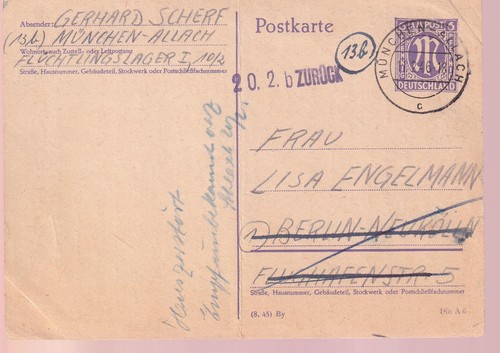 Absender: GERHARD SCHERF
(13b) MÜNCHEN-ALLACH
Wohnort, auch Zustell- oder Leitpostamt
FLÜCHTLINGSLAGER I, 10/2
Straße, Hausnummer, Gebäudeteil, Stockwerk oder Postschließfachnummer
Postkarte
13b
20.2.b ZURÜCK
POST 6
M
DEUTSCHLAND
MÜNCHEN-ALLACH
c
FRAU
LISA ENGELMANN
1) BERLIN-NEUKÖLLN
FLUGHAFENSTR. 5
Straße, Hausnummer, Gebäudeteil, Stockwerk oder Postschließfachnummer
(8. 45) By
Din A 6
Haus zerstört
Empf. unbekannt verz.